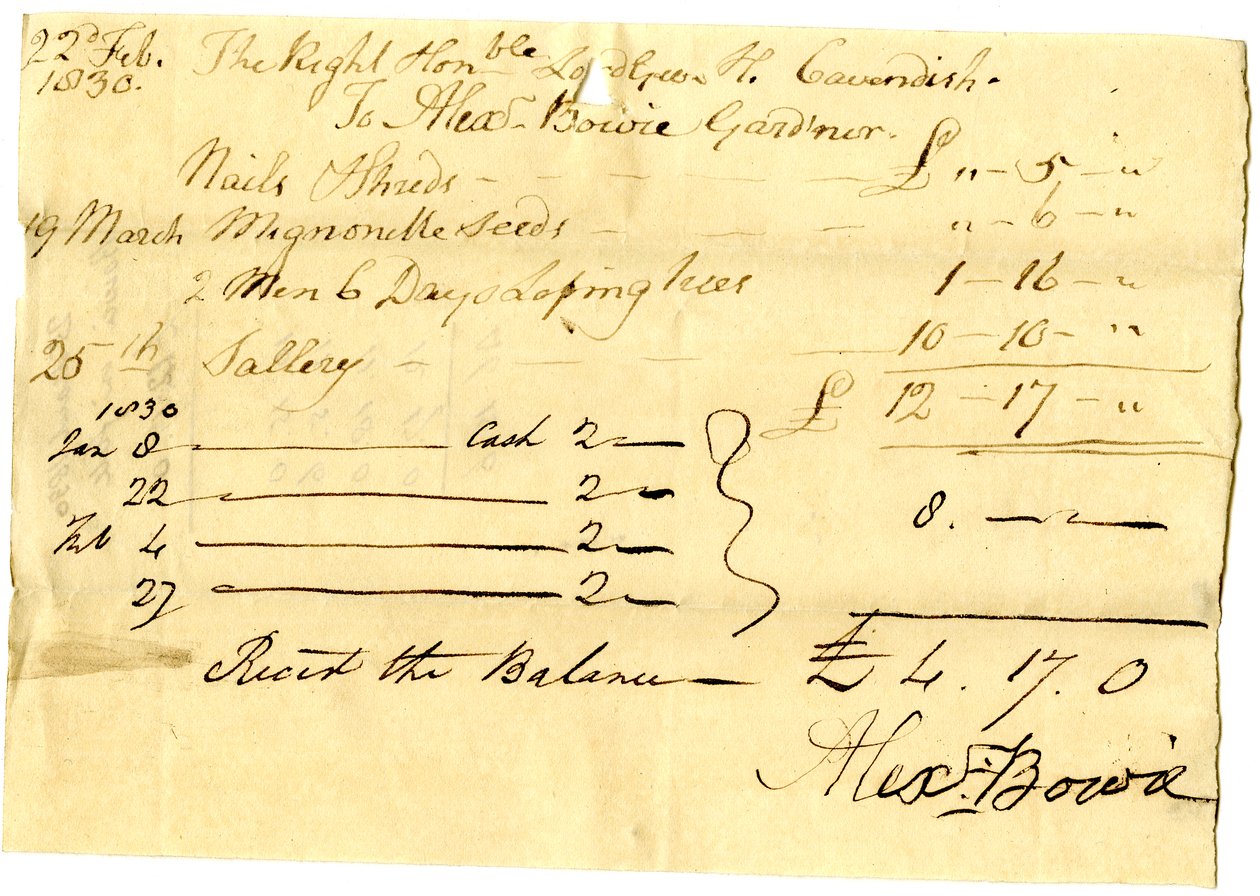 22d Feb. The Right Honble Lord Geo. H. Cavendish.
1830.
To Alexr Bowie Gard'ner.
Nails & Shreds - - - - - £ " - 5 - "
19 March Mignonelle Seeds - - - " - 6 - "
2 Men 6 Days Loping trees 1 - 16 - "
25th Sallery - - - - 10 - 10 - "
£ 12 - 17 - "
1830
Jan 8 — Cash 2 —
22 — 2 —
Feb 4 — 2 — 8. —
27 — 2 —
Recd the Balance — £ 4. 17. 0
Alexr Bowie